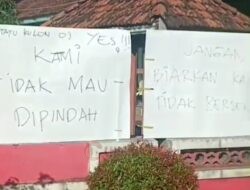 KULON
YES!!!
KAMI
TIDAK MAU
DIPINDAH
JANGAN
BIARKAN KA
TIDAK BERSE